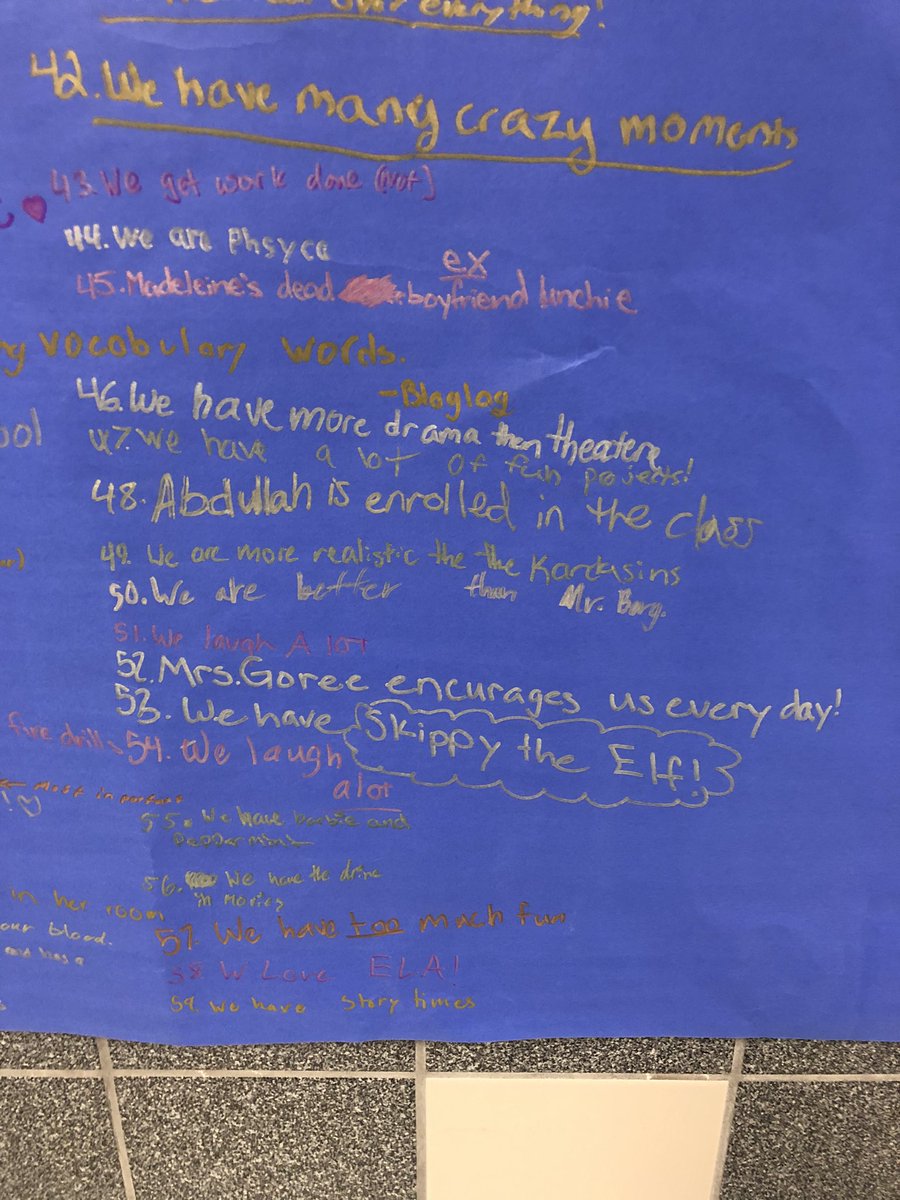 over everything!
42. We have many crazy moments
43. We get work done (not)
44. We are Phsyco
45. Madeleine's dead ex boyfriend Lunchie
vocobulary words.
- Bloglog
46. We have more drama then theatere
47. We have a lot of fun projects!
48. Abdullah is enrolled in the class
49. We are more realistic the the Kardasins
50. We are better than Mr. Borg.
51. We laugh A lot
52. Mrs. Goree encurages us every day!
53. We have Skippy the Elf!
fire drills
54. We laugh alot
most important
55. We have barbie and
peppermint
56. We have the drive
in movies
in her room
57. We have too much fun
our blood.
and has a
58. W Love ELA!
59. We have story times